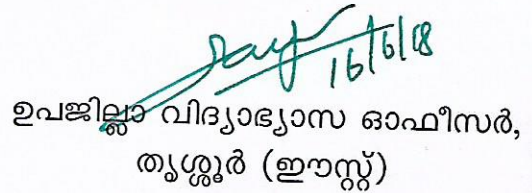 16/6/18
ഉപജില്ലാ വിദ്യാഭ്യാസ ഓഫീസർ,
തൃശ്ശൂർ (ഈസ്റ്റ്)